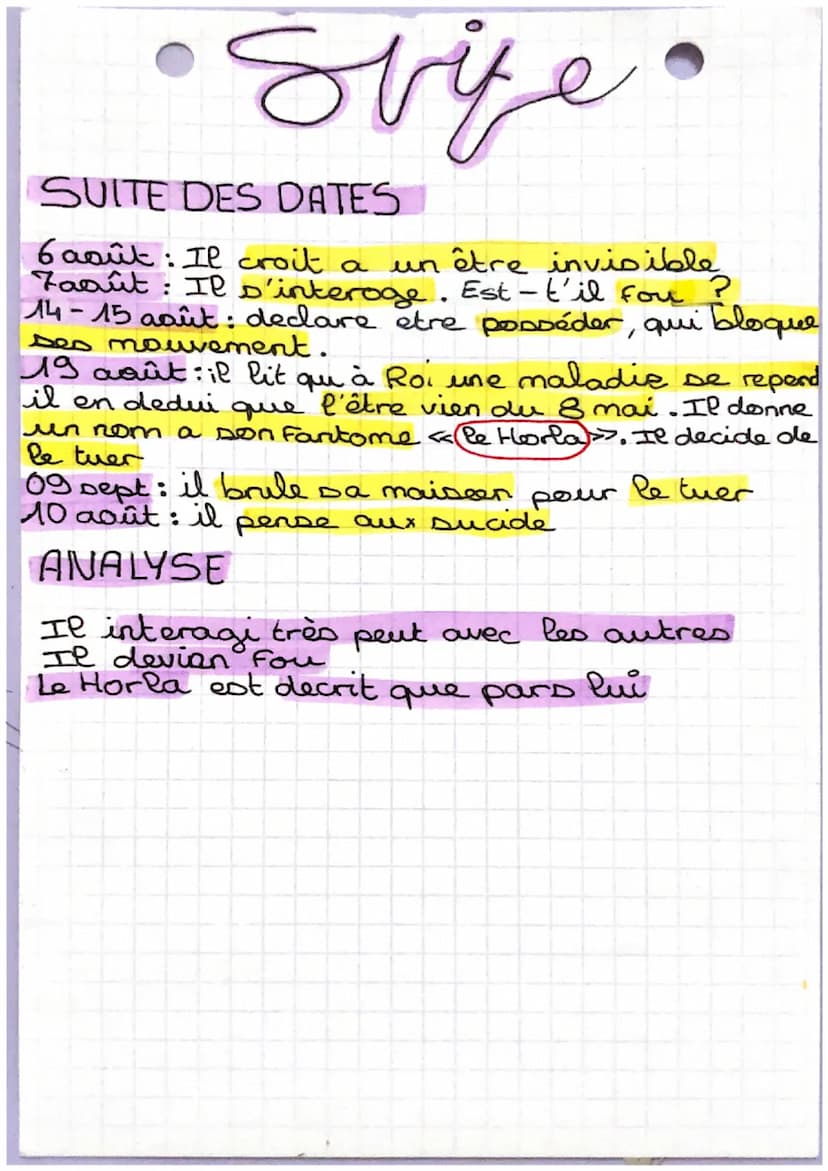 Suite
SUITE DES DATES
6 août : Il croit a un être invisible
7août : Il s'interoge. Est-t'il Fou ?
14-15 août : declare etre posséder, qui bloque
ses mouvement.
19 août : il lit qu'à Roi une maladie se repend
il en dedui que l'être vien du 8 mai. Il donne
un nom a son Fantome «le Horla». Il decide de
le tuer
09 sept : il brule sa maison pour le tuer
10 août : il pense aux sucide
ANALYSE
Il interagi très peut avec les autres
Il devian Fou
Le Horla est decrit que pars lui